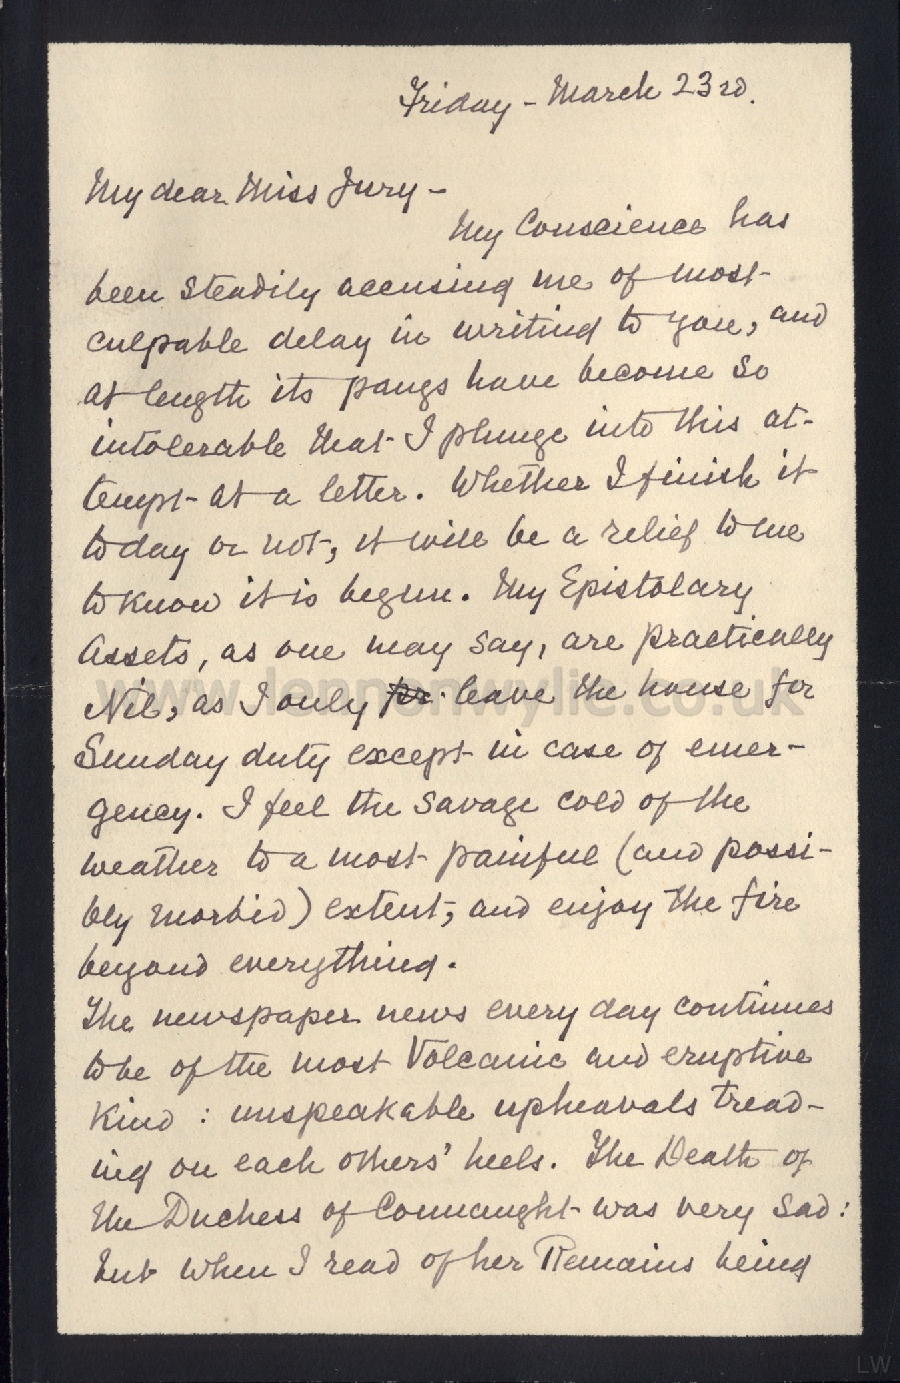 Friday - March 23rd.
My dear Miss Jury -
My Conscience has
been steadily accusing me of most
culpable delay in writing to you, and
at length its pangs have become so
intolerable that I plunge into this at-
tempt at a letter. Whether I finish it
today or not, it will be a relief to me
to know it is begun. My Epistolary
Assets, as one may say, are practically
Nil, as I only pr. leave the house for
Sunday duty except in case of emer-
gency. I feel the savage cold of the
weather to a most painful (and possi-
bly morbid) extent, and enjoy the fire
beyond everything.
The newspaper news every day continues
to be of the most Volcanic and eruptive
Kind : unspeakable upheavals tread-
ing on each others' heels. The Death of
the Duchess of Connaught was very sad :
but when I read of her Remains being
www.lennonwylie.co.uk
LW